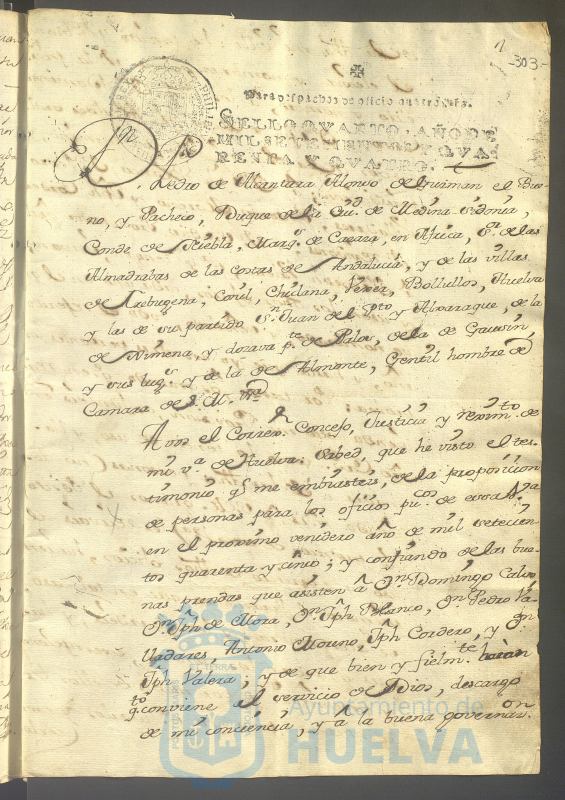 1
-303-
Para despachos de oficio quatro mrs.
SELLO QVARTO, AÑO DE
MIL SETECIENTOS Y QVA-
RENTA Y QVATRO.
Dn. Pedro de Alcantara Alonso de Guzman el Bue-
no, y Pacheco, Duque de la Ciud. de Medina Sidonia,
Conde de Niebla, Marqs. de Cazaza, en Africa, Sr. de las
Almadrabas de las costas de Andalucia, y de las villas
de Trebugena, Conil, Chiclana, Vexer, Bollullos, Huelva
y las de su partido Sn. Juan del Pto. y Aljaraque, de la
de Ximena, y dozava pte. de Palos, de la de Gaucin,
y sus lugs. y de la de Almonte, Gentil hombre de
Camara de S. M. &a.
A vos el Correxr. Concejo, Justicia y Reximto. de
mi va. de Huelva. Sabed, que he visto el tes-
timonio qe. me embiasteis, de la proposicion
de personas para los oficios pucos. de essa
en el proximo venidero año de mil setecien-
tos quarenta y cinco; y confiando de las bue-
nas prendas que asisten â Dn. Domingo
Dn. Jph de Mora, Dn. Jph Blanco, Dn. Pedro Va-
lladares, Antonio Moreno, Jph Cordero, y Dn.
Jph Valera; y de que bien y fielmte. haràn
to. q. conviene al servicio de Dios, descargo
de mi conciencia, y â la buena governaon.
Ayuntamiento de
HUELVA